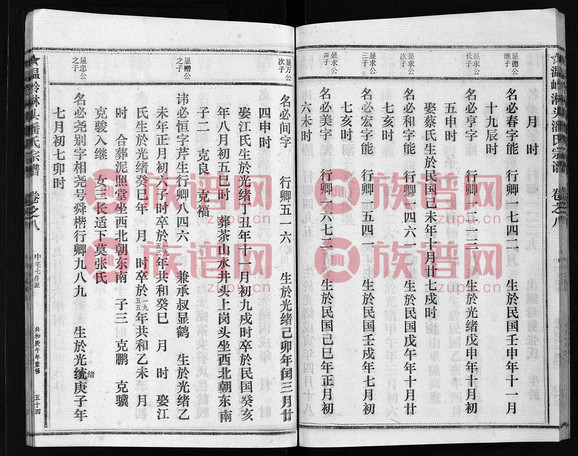 月　时
显德公长子
名必春字能　行卿一七四二　生於民国壬申年十一月
十九辰时
显求公长子
名必亨字　行卿一　二三　生於光绪戊申年十月初
五申时
娶蔡氏生於民国己未年十月廿七戌时
显求公次子
名必和字能　行卿一四六一　生於民国戊午年十月廿
七亥时
显求公三子
名必宏字能　行卿一五四一　生於民国壬戌年七月初
七亥时
名必美字　行卿一六七三　生於民国己巳年正月初
六未时
显万公次子
名必间字　行卿五一六　生於光绪己卯年闰三月廿
四申时
娶江氏生於光绪丁丑年十一月初九戌时卒於民国癸亥
年八月初五巳时　葬茶山水井头上岗头坐西北朝东南
子二　克良　克福
显赠公之子
讳必恒字芹生行卿八四六　兼承叔显鹤　生於光绪乙
未年正月初六子时卒於一九五三年共和癸巳　月　时　娶江
氏生於光绪癸巳年　月　时卒於一九五五年共和乙未　月
时　合葬泥照堂坐西北朝东南　子三　克鹏　克骥
克骏入继　女三长适下莫张氏
显忠公之子
名必尧别字相尧号舜楷行卿九八九　生於光绪庚子年
七月初七卯时
温岭淋头潘氏宗谱　卷之八
五十四
族谱网
zupu.cn